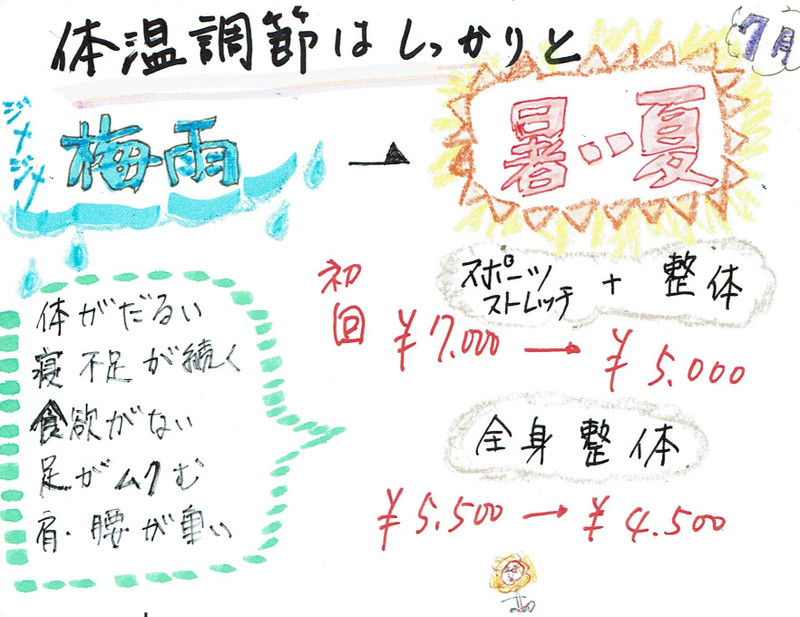 体温調節はしっかりと
7月
ジメジメ
梅雨
→
暑い夏
体がだるい
寝不足が続く
食欲がない
足がムクむ
肩・腰が重い
初回
スポーツストレッチ + 整体
¥7.000 → ¥5.000
全身整体
¥5.500 → ¥4.500